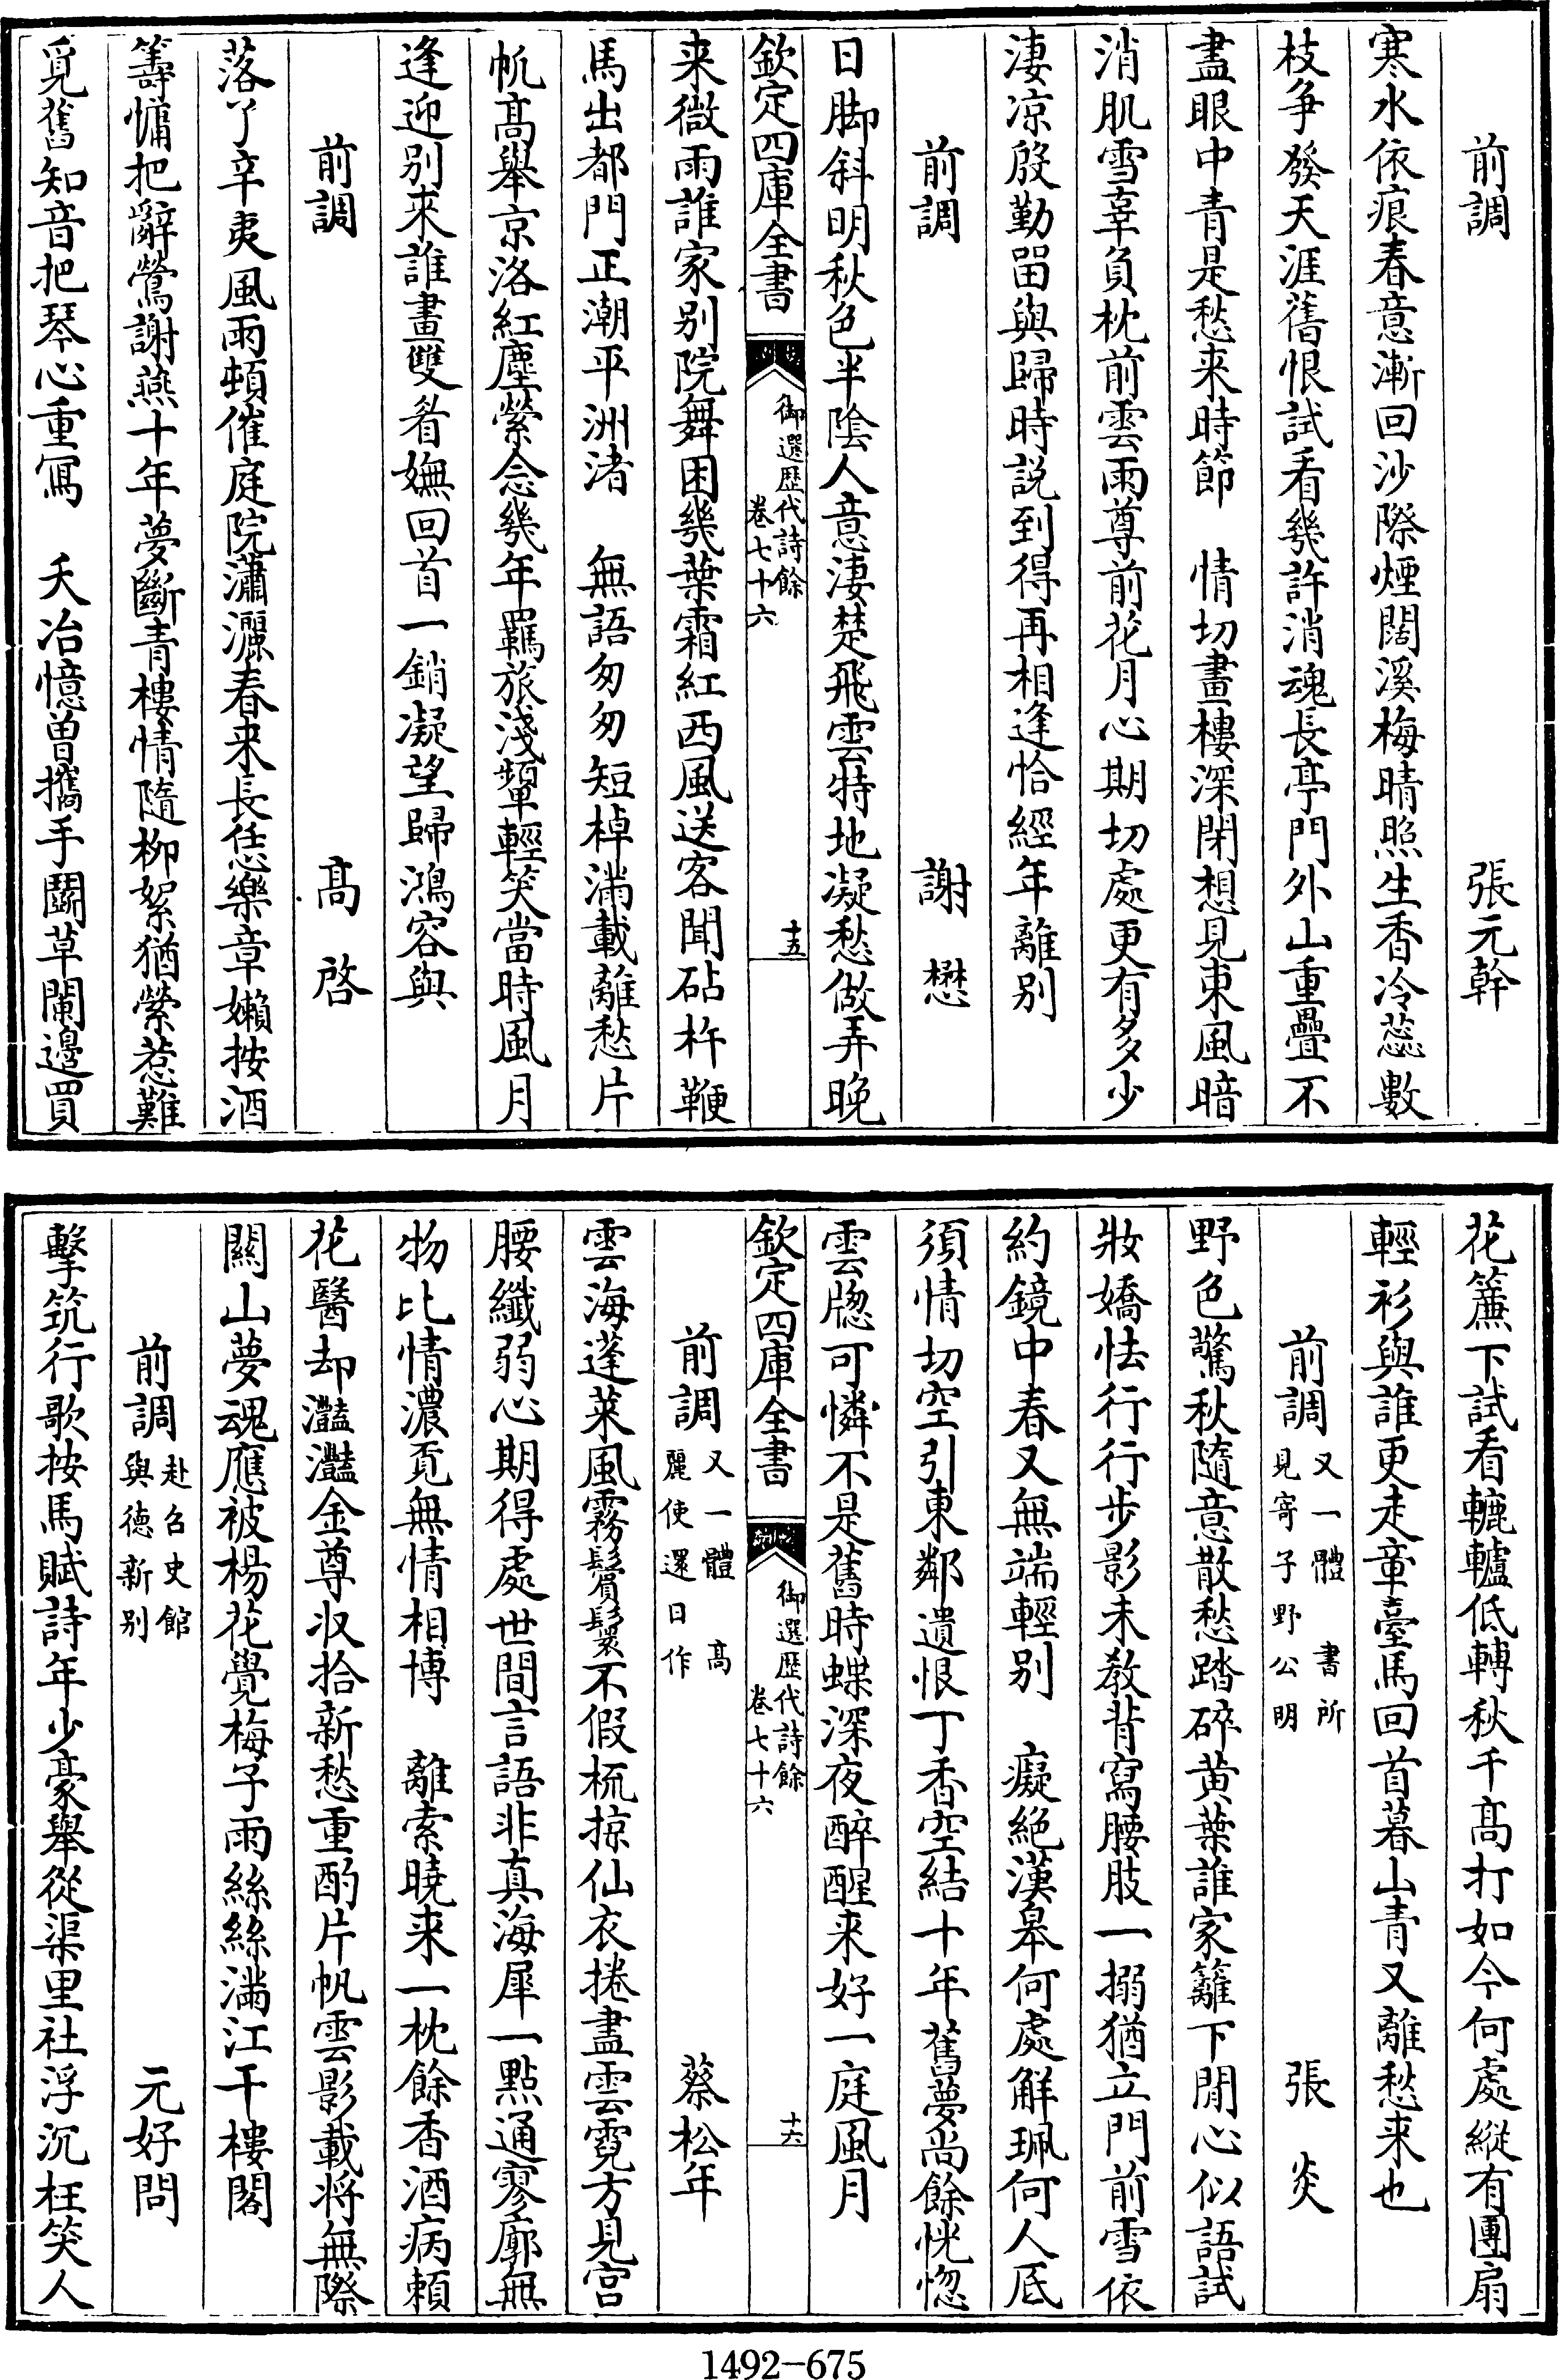 前調　張元幹
寒水依痕春意漸回沙際煙闊溪梅晴照生香冷蕊數
枝争發天涯舊恨試看幾許消魂長亭門外山重疊不
盡眼中青是愁来時節　情切畫樓深閉想見東風暗
消肌雪辜負枕前雲雨尊前花月心期切處更有多少
淒凉殷勤留與歸時説到得再相逢恰經年離别
前調　謝懋
日脚斜明秋色半陰人意淒楚飛雲特地凝愁做弄晚
欽定四庫全書　御選歷代詩餘　卷七十六　十五
来微雨誰家别院舞困幾葉霜紅西風送客聞砧杵鞭
馬出都門正潮平洲渚　無語匆匆短棹滿載離愁片
帆高舉京洛紅塵縈念幾年羈旅淺顰輕笑當時風月
逢迎别来誰畫雙眉嫵回首一銷凝望歸鴻容與
前調　高啓
落了辛夷風雨頓催庭院瀟灑春来長恁樂章嬾按酒
籌慵把辭鶯謝燕十年夢斷青樓情隨柳絮猶縈惹難
覓舊知音把琴心重寫　夭冶憶曽攜手鬭草闌邊買
花簾下試看轆轤低轉秋千高打如今何處縱有團扇
輕衫與誰更走章臺馬回首暮山青又離愁来也
前調　又一體　書所見寄子野公明　張炎
野色驚秋隨意散愁踏碎黄葉誰家籬下閒心似語試
妝嬌怯行行步影未敎背寫腰肢一搦猶立門前雪依
約鏡中春又無端輕别　癡絶漢皋何處解珮何人底
須情切空引東鄰遺恨丁香空結十年舊夢尚餘恍惚
雲牕可憐不是舊時蝶深夜醉醒来好一庭風月
欽定四庫全書　御選歷代詩餘　卷七十六　十六
前調　又一體　高麗使還日作　蔡松年
雲海蓬莱風霧鬢鬟不假梳掠仙衣捲盡雲霓方見宫
腰纖弱心期得處世間言語非真海犀一點通寥廓無
物比情濃覓無情相博　離索曉来一枕餘香酒病頼
花醫却灩灩金尊收拾新愁重酌片帆雲影載将無際
關山夢魂應被楊花覺梅子雨絲絲滿江干樓閣
前調　赴召史館與德新别　元好問
擊筑行歌按馬賦詩年少豪舉從渠里社浮沉枉笑人
1492-675